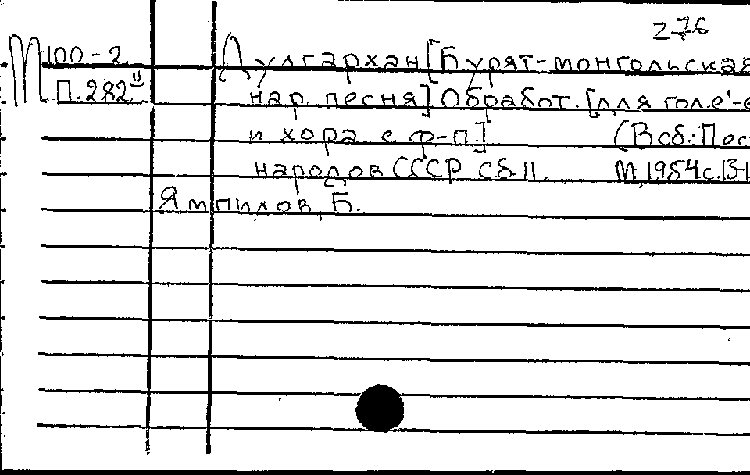 Z-76
М 100-2 Дулгархан [Бурят-монгольская
П.282" нар. песня] Обработ. [для гол.
и хора с ф-п] (В сб.: Пес
народов СССР Сб 11. М, 1954 с. 13-1
Ямпилов, Б.